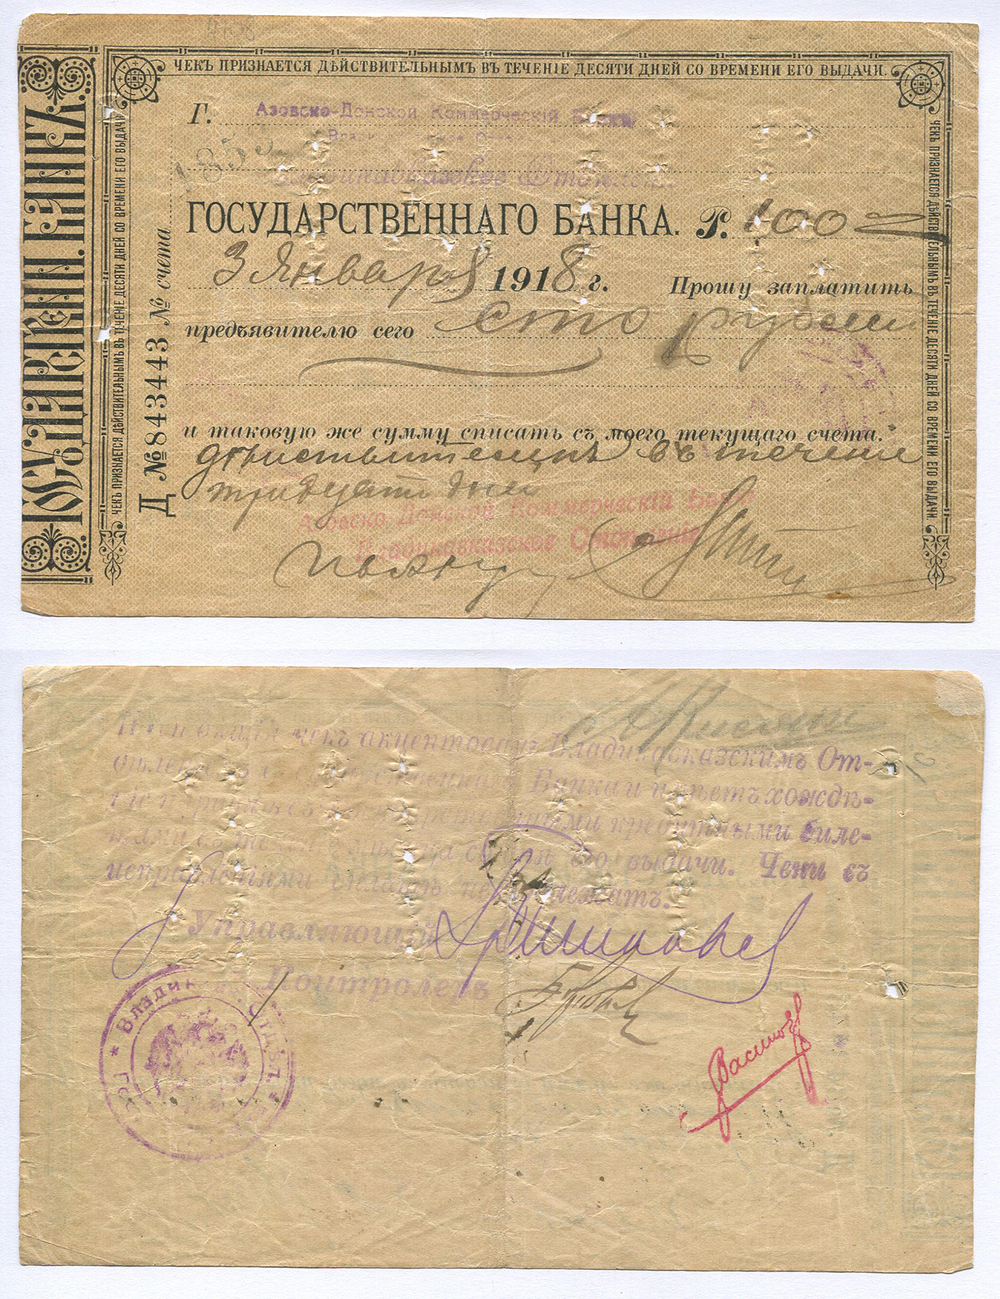 ГОСУДАРСТВЕНН. БАНКЪ.
ЧЕКЪ ПРИЗНАЕТСЯ ДѢЙСТВИТЕЛЬНЫМЪ ВЪ ТЕЧЕНІЕ ДЕСЯТИ ДНЕЙ СО ВРЕМЕНИ ЕГО ВЫДАЧИ.
ЧЕКЪ ПРИЗНАЕТСЯ ДѢЙСТВИТЕЛЬНЫМЪ ВЪ ТЕЧЕНІЕ ДЕСЯТИ ДНЕЙ СО ВРЕМЕНИ ЕГО ВЫДАЧИ
Д №843443 № счета
Г. Азовско-Донской Коммерческій Банкъ
Владикавказское Отдѣлен.
ГОСУДАРСТВЕННАГО БАНКА. Р. 100
3 Января 1918 г. Прошу заплатить
предъявителю сего сто рублей
и таковую же сумму списать съ моего текущаго счета.
действителенъ въ течение
тридцати дней
Азовско-Донской Коммерческій Банкъ
Владикавказское Отдѣленіе
ЧЕКЪ ПРИЗНАЕТСЯ ДѢЙСТВИТЕЛЬНЫМЪ ВЪ ТЕЧЕНІЕ ДЕСЯТИ ДНЕЙ СО ВРЕМЕНИ ЕГО ВЫДАЧИ
чекъ акцептованъ Владикавказскимъ От-
дѣленіемъ Государственнаго Банка и имѣетъ хожде-
ніе наравнѣ съ государственными кредитными биле-
тами въ теченіе со дня его выдачи. Чеки съ
исправленіями оплатѣ не подлежатъ.
Управляющій
Контролеръ